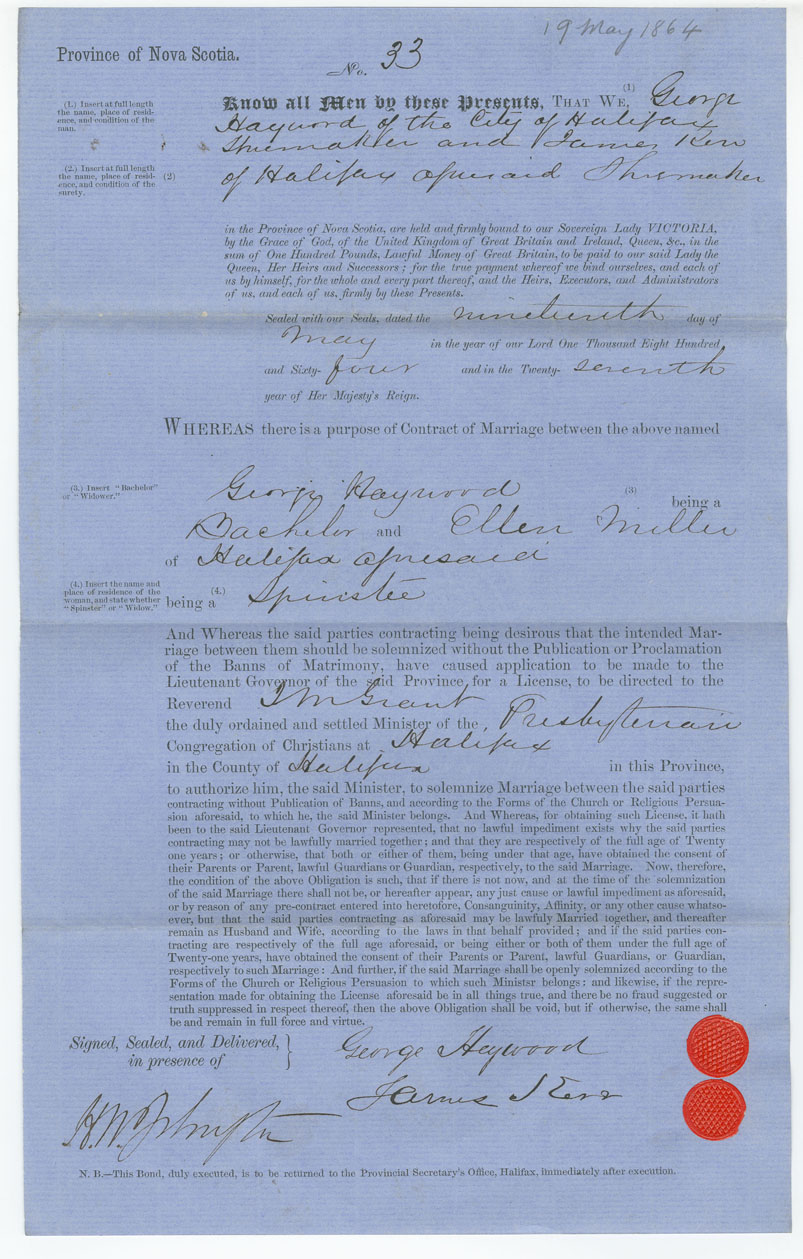 19 May 1864
Province of Nova Scotia.
No. 33
(1.) Insert at full length
the name, place of resid-
ence, and condition of the
man.
Know all Men by these Presents, THAT WE, (1) George
Haywood of the City of Halifax
Shoemaker and James Kerr
(2.) Insert at full length
the name, place of resid-
ence, and condition of the
surety.
(2) of Halifax aforesaid Shoemaker
in the Province of Nova Scotia, are held and firmly bound to our Sovereign Lady VICTORIA,
by the Grace of God, of the United Kingdom of Great Britain and Ireland, Queen, &c., in the
sum of One Hundred Pounds, Lawful Money of Great Britain, to be paid to our said Lady the
Queen, Her Heirs and Successors; for the true payment whereof we bind ourselves, and each of
us by himself, for the whole and every part thereof, and the Heirs, Executors, and Administrators
of us, and each of us, firmly by these Presents.
Sealed with our Seals, dated the nineteenth day of
May in the year of our Lord One Thousand Eight Hundred,
and Sixty- four and in the Twenty- seventh
year of Her Majesty's Reign.
WHEREAS there is a purpose of Contract of Marriage between the above named
(3.) Insert "Bachelor"
or "Widower."
George Haywood (3) being a
Bachelor and Ellen Miller
of Halifax aforesaid
(4.) Insert the name and
place of residence of the
woman, and state whether
"Spinster" or "Widow."
being a (4.) Spinster
And Whereas the said parties contracting being desirous that the intended Mar-
riage between them should be solemnized without the Publication or Proclamation
of the Banns of Matrimony, have caused application to be made to the
Lieutenant Governor of the said Province, for a License, to be directed to the
Reverend Grant
the duly ordained and settled Minister of the Presbyterian
Congregation of Christians at Halifax
in the County of Halifax in this Province,
to authorize him, the said Minister, to solemnize Marriage between the said parties
contracting without Publication of Banns, and according to the Forms of the Church or Religious Persua-
sion aforesaid, to which he, the said Minister belongs. And Whereas, for obtaining such License, it hath
been to the said Lieutenant Governor represented, that no lawful impediment exists why the said parties
contracting may not be lawfully married together; and that they are respectively of the full age of Twenty
one years; or otherwise, that both or either of them, being under that age, have obtained the consent of
their Parents or Parent, lawful Guardians or Guardian, respectively, to the said Marriage. Now, therefore,
the condition of the above Obligation is such, that if there is not now, and at the time of the solemnization
of the said Marriage there shall not be, or hereafter appear, any just cause or lawful impediment as aforesaid,
or by reason of any pre-contract entered into heretofore, Consanguinity, Affinity, or any other cause whatso-
ever, but that the said parties contracting as aforesaid may be lawfuly Married together, and thereafter
remain as Husband and Wife, according to the laws in that behalf provided; and if the said parties con-
tracting are respectively of the full age aforesaid, or being either or both of them under the full age of
Twenty-one years, have obtained the consent of their Parents or Parent, lawful Guardians, or Guardian,
respectively to such Marriage: And further, if the said Marriage shall be openly solemnized according to the
Forms of the Church or Religious Persuasion to which such Ministsr belongs: and likewise, if the repre-
sentation made for obtaining the License aforesaid be in all things true, and there be no fraud suggested or
truth suppressed in respect thereof, then the above Obligation shall be void, but if otherwise, the same shall
be and remain in full force and virtue.
Signed, Sealed, and Delivered,
in presence of
George Haywood
James Kerr
H. W. Johnston
N. B.—This Bond, duly executed, is to be returned to the Provincial Secretary's Office, Halifax, immediately after execution.